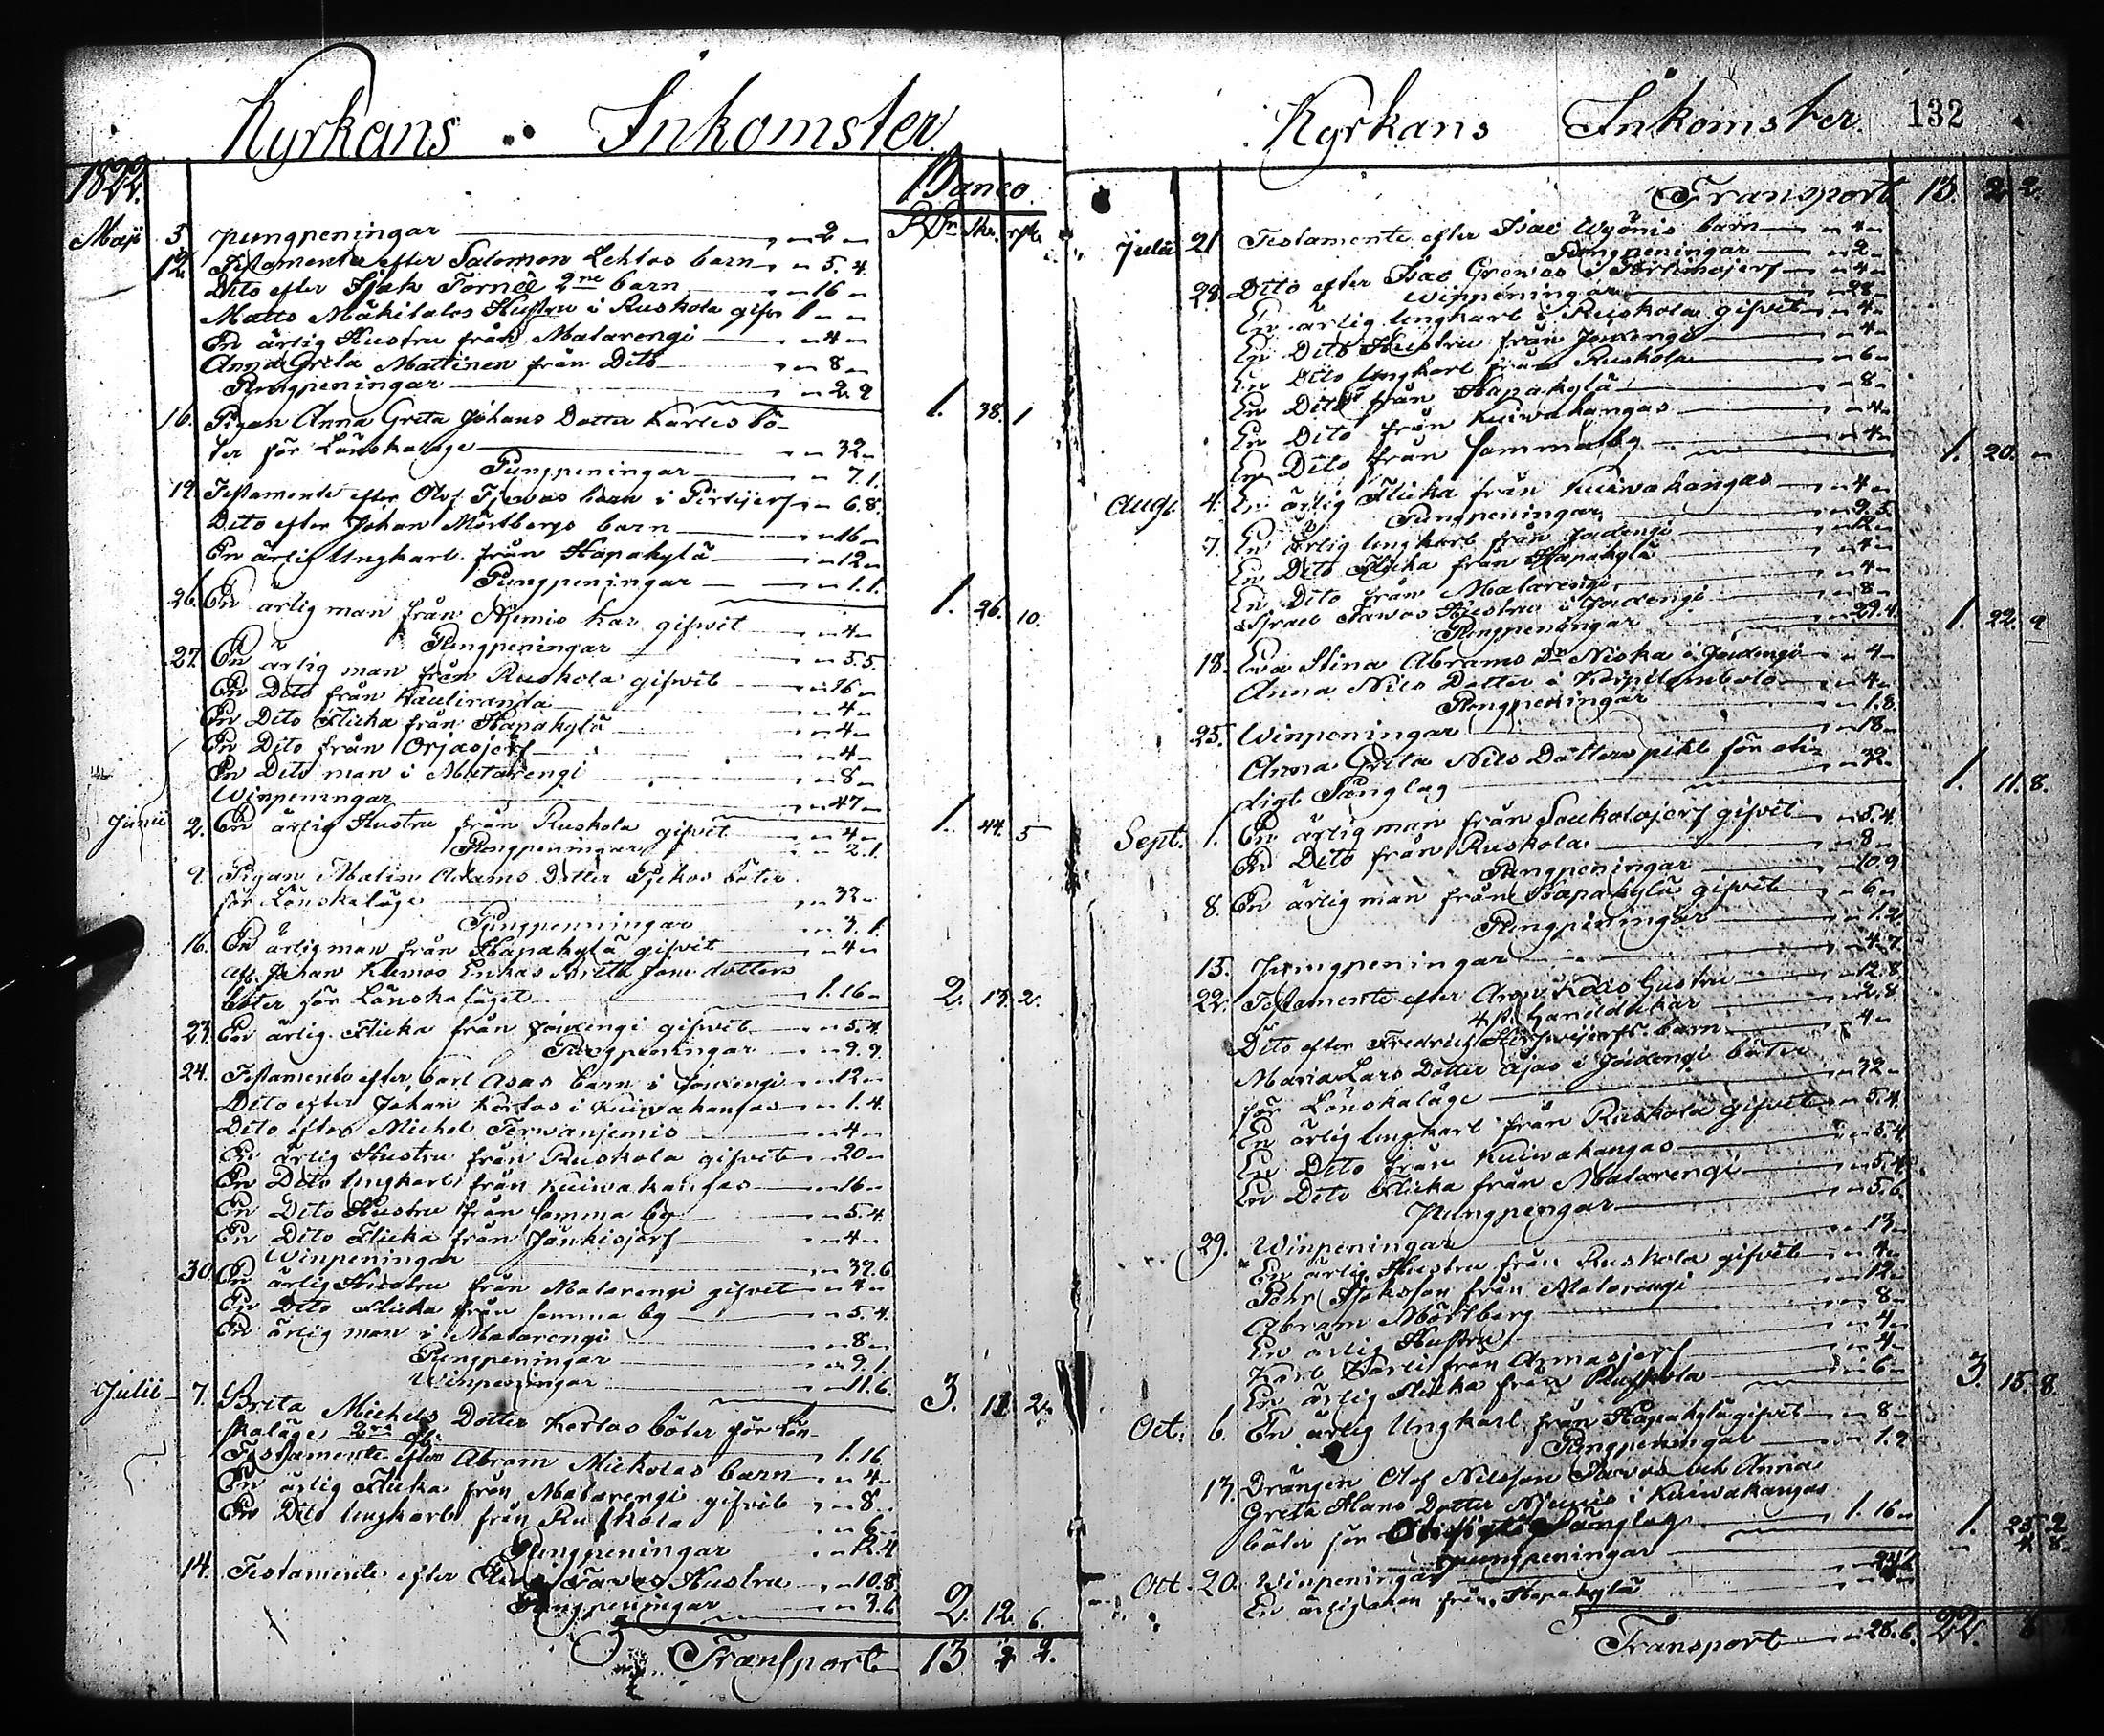 Kyrkans Inkomster
1822.
Banco.
RDr. sk. rst.
Maji 5 pungpeningar „ 2 „
12 Testamente efter Salomon Lehtos barn „ 5. 4.
Dito efter Isak Forneé 2ne barn „ 16 „
Matts Mäkitalos Hustru i Ruskola gifvit 1 „ „
En ärlig Hustru från Matarengi „ 4 „
Anna Greta Mattinen från Dito „ 8 „
Pungpeningar „ 2. 9 1. 38. 1
16. Pigan Anna Greta Johans Dotter Karles bö-
ter för Lönskaläge „ 32 „
Pungpeningar „ 7. 1.
19. Testamente efter Olof barn i „ 6. 8.
Dito efter Johan Mörtbergs barn „ 16 „
En ärlig Ungkarl från Hapakylä „ 12 „
Pungpeningar „ 1. 1. 1. 26. 10.
26. En ärlig man från Niemis har gifwit „ 4 „
Pungpeningar „ 5. 5.
27. En ärlig man från Ruskola gifwit „ 16 „
En Dito från Kauliranda „ 4 „
En Dito Flicka från Hapakylä „ 4 „
En Dito från Orjasjerf „ 4 „
En Dito man i Matarengi „ 8 „
Winpeningar „ 47 „ 1. 44. 5
Junii 2. En ärlig Hustru från Ruskola gifvit „ 4 „
Pungpeningar „ 2. 1.
9. Pigan Malin Adams Dotter böter
för Lönskaläge „ 32 „
Pungpenningar „ 3. 1.
16. En ärlig man från Hapakylä gifvit „ 4 „
Af Johan Enkas Brita dotters
böter för Lönskaläget 1. 16 „ 2. 13. 2.
23. En ärlig Flicka från Jouxengi gifvit „ 5. 4.
Pungpeningar „ 9. 9.
24. Testamente efter Carl Asas barn i Jouxengi „ 12 „
Dito efter Johan Kortos i Kuiwakangas „ 1. 4.
Dito efter Michel Terwaniemis „ 4 „
En ärlig Hustru från Ruskola gifvit „ 20 „
En Dito Ungkarl från Kuiwakangas „ 16 „
En Dito Hustru från Somma by „ 5. 4.
En Dito Flicka från Jänkisjerf „ 4 „
Winpeningar „ 39. 6
30. En ärlig Hustru från Matarengi gifvit „ 4 „
En Dito Flicka från Somma by „ 5. 4.
En ärlig man i Matarengi „ 8 „
Pungpeningar „ 9. 1.
Winpeningar „ 11. 6. 3. 11. 2.
Julii 7. Brita Michels Dotter Kortos böter för Lön-
skaläge 2ra 1. 16
Testamente efter Abram Mickolas barn „ 4 „
En ärlig Flicka från Matarengi gifvit „ 8 „
En Dito Ungkarl från Ruskola „ 6 „
Pungpeningar „ 12. 4
14. Testamente efter Hustru „ 10. 8.
Pungpeningar „ 3. 6 2. 12. 6.
Transport 13 2 2.
Kyrkans Inkomster. 132
Transport 13. 2 2.
Julii 21 Testamente efter Isac Wyönis barn „ 4 „
Pungpeningar „ 2 „
28. Dito efter Isac i „ 4 „
Winpeningar „ 28 „
En ärlig Ungkarl i Ruskola gifvit „ 4 „
En Dito Hustru från Jouxengi „ 4 „
En Dito Ungkarl från Ruskola „ 6 „
En Dito från Hapakylä „ 8 „
En Dito från Kuiwakangas „ 4 „
En Dito från Somma by „ 4 „ 1. 20. „
Aug. 4. En ärlig Flicka från Kuiwakangas „ 4 „
Pungpeningar „ 9. 5.
7. En ärlig Ungkarl från Jouxengi „ 12 „
En Dito Flicka från Hapakylä „ 4 „
En Dito från Matarengi „ 4 „
Israel Hustru i Jouxengi „ 8 „
Pungpeningar „ 29. 4. 1. 22. 9
18. Eva Stina Abrams Dr Niska i Jouxengi „ 4 „
Anna Nils Dotter i „ 4 „
Pungpeningar „ 1. 8.
25. Winpeningar „ 18 „
Anna Greta Nils Dotters plikt för oti-
digt Sänglag „ 32 „ 1. 11. 8.
Sept. 1. En ärlig man från Soukolojerf gifvit „ 5. 4.
En Dito från Ruskola „ 8 „
Pungpeningar „ 10. 9
8. En ärlig man från Hapakylä gifvit „ 6 „
Pungpeningar „ 1. 2
15. Pungpeningar „ 4. 7.
22. Testamente efter Hustru „ 12. 8.
„ 2. 8
Dito efter Fredrich barn „ 4 „
Maria Lars Dotter Äjas i Jouxengi böter
för Lönskaläge „ 32 „
En ärlig Ungkarl från Ruskola gifvit „ 5. 4.
En Dito från Kuiwakangas „ 5. 4
En Dito Flicka från Matarengi „ 5. 4.
Pungpengar „ 5. 6.
29. Winpeningar „ 13 „
En ärlig Hustru från Ruskola gifvit „ 4 „
Pehr Isaksson från Matarengi „ 12 „
Abram Mörtberg „ 8 „
En ärlig Hustru „ 4 „
Karl Karli från Armasjerf „ 4 „
En ärlig Flicka från Ruskola „ 6 „ 3. 15. 8.
Oct. 6. En ärlig Ungkarl från Hapakylä gifvit „ 8 „
Pungpeningar „ 1. 2
13. Drängen Olof Nilsson och Anna
Greta Hans Dotter Niemis i Kuiwakangas
böter för Otidigt Sänglag 1. 16 „ 1. 25. 2
pungpeningar „ 4 8.
Oct. 20. Winpeningar
En ärlig man från Hapakylä
Transport „ 28. 6. 22. 8